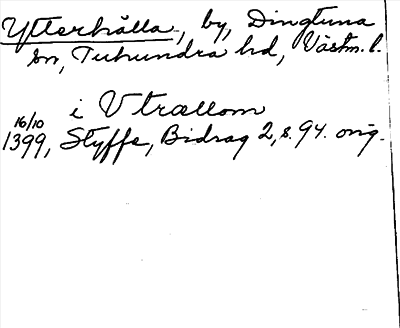 Ytterhälla, by, Dingtuna
sn, Tuhundra hd, Västm. l.
i Vtrællom
16/10
1399, Styffe, Bidrag 2, s. 94. orig.